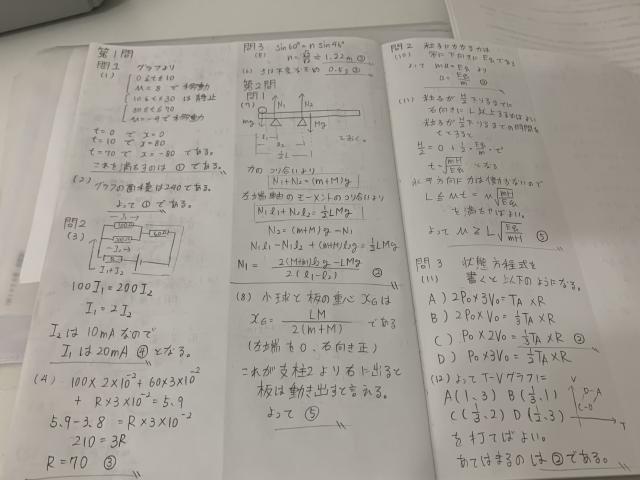 第1問
問1 グラフより
(1)
0≤t≤10
u=8 で等速運動
10≤t≤30 は静止
30≤t≤70
u=-4 で等速運動
t=0 で x=0
t=10 で x=80
t=70 で x=-80 である。
これを満たすのは①である。
(2)
グラフの面積は240である。
よって①である。
問2
(3)
I₁→
100Ω
200Ω
60Ω
I₂→
R
I₁+I₂
100I₁=200I₂
I₁=2I₂
I₂は10mAなので
I₁は20mA ④となる。
(4) 100×2×10⁻²+60×3×10⁻²
+R×3×10⁻²=5.9
5.9-3.8=R×3×10⁻²
210=3R
R=70 ③
問3 sin60°=n sin45°
(5)
≒1.22
(6)
第2問
問1
(7)
N₁ N₂
mg Mg
l₁
l₂
½L
とおく。
力のつり合いより
N₁+N₂=(m+M)g
左端軸のモーメントのつり合いより
N₁l₁+N₂l₂=½LMg
N₂=(m+M)g-N₁
N₁l₁-N₁l₂+(m+M)l₂g=½LMg
N₁=2(M+m)l₂g-LMg/2(l₂-l₁) ②
(8) 小球と板の重心 xGは
xG=LM/2(m+M) である
(左端を0、右向き正)
これが支柱2より右に出ると
板は動き出すと言える。
よって ⑤
問2 粒子にかかる力は
(10) 常に下向きに Eq である
よって ma=Eq より
a=Eq/m ②
(11) 粒子が H/2 下りるまでに
右向きに L 以上すすめばよい
粒子が H/2 下りるまでの時間を
tとすると
H/2=0+½・Eq/m・t²
t=√(mH/Eq) となる
水平方向に力は働かないので
L≤ut=u√(mH/Eq)
を満たせばよい。
よって u≥L√(Eq/mH) ⑤
問3 状態方程式を
(11) 書くと以下のようになる。
A) 2P₀×3V₀=TA×R
B) 2P₀×V₀=⅓TA×R
C) P₀×2V₀=⅓TA×R ②
D) P₀×3V₀=½TA×R
(12) よって T-Vグラフに
A(1、3) B(⅓、1)
C(⅓、2) D(½、3)
を打てばよい。
あてはまるのは②である。
V
D-A
C-B
T